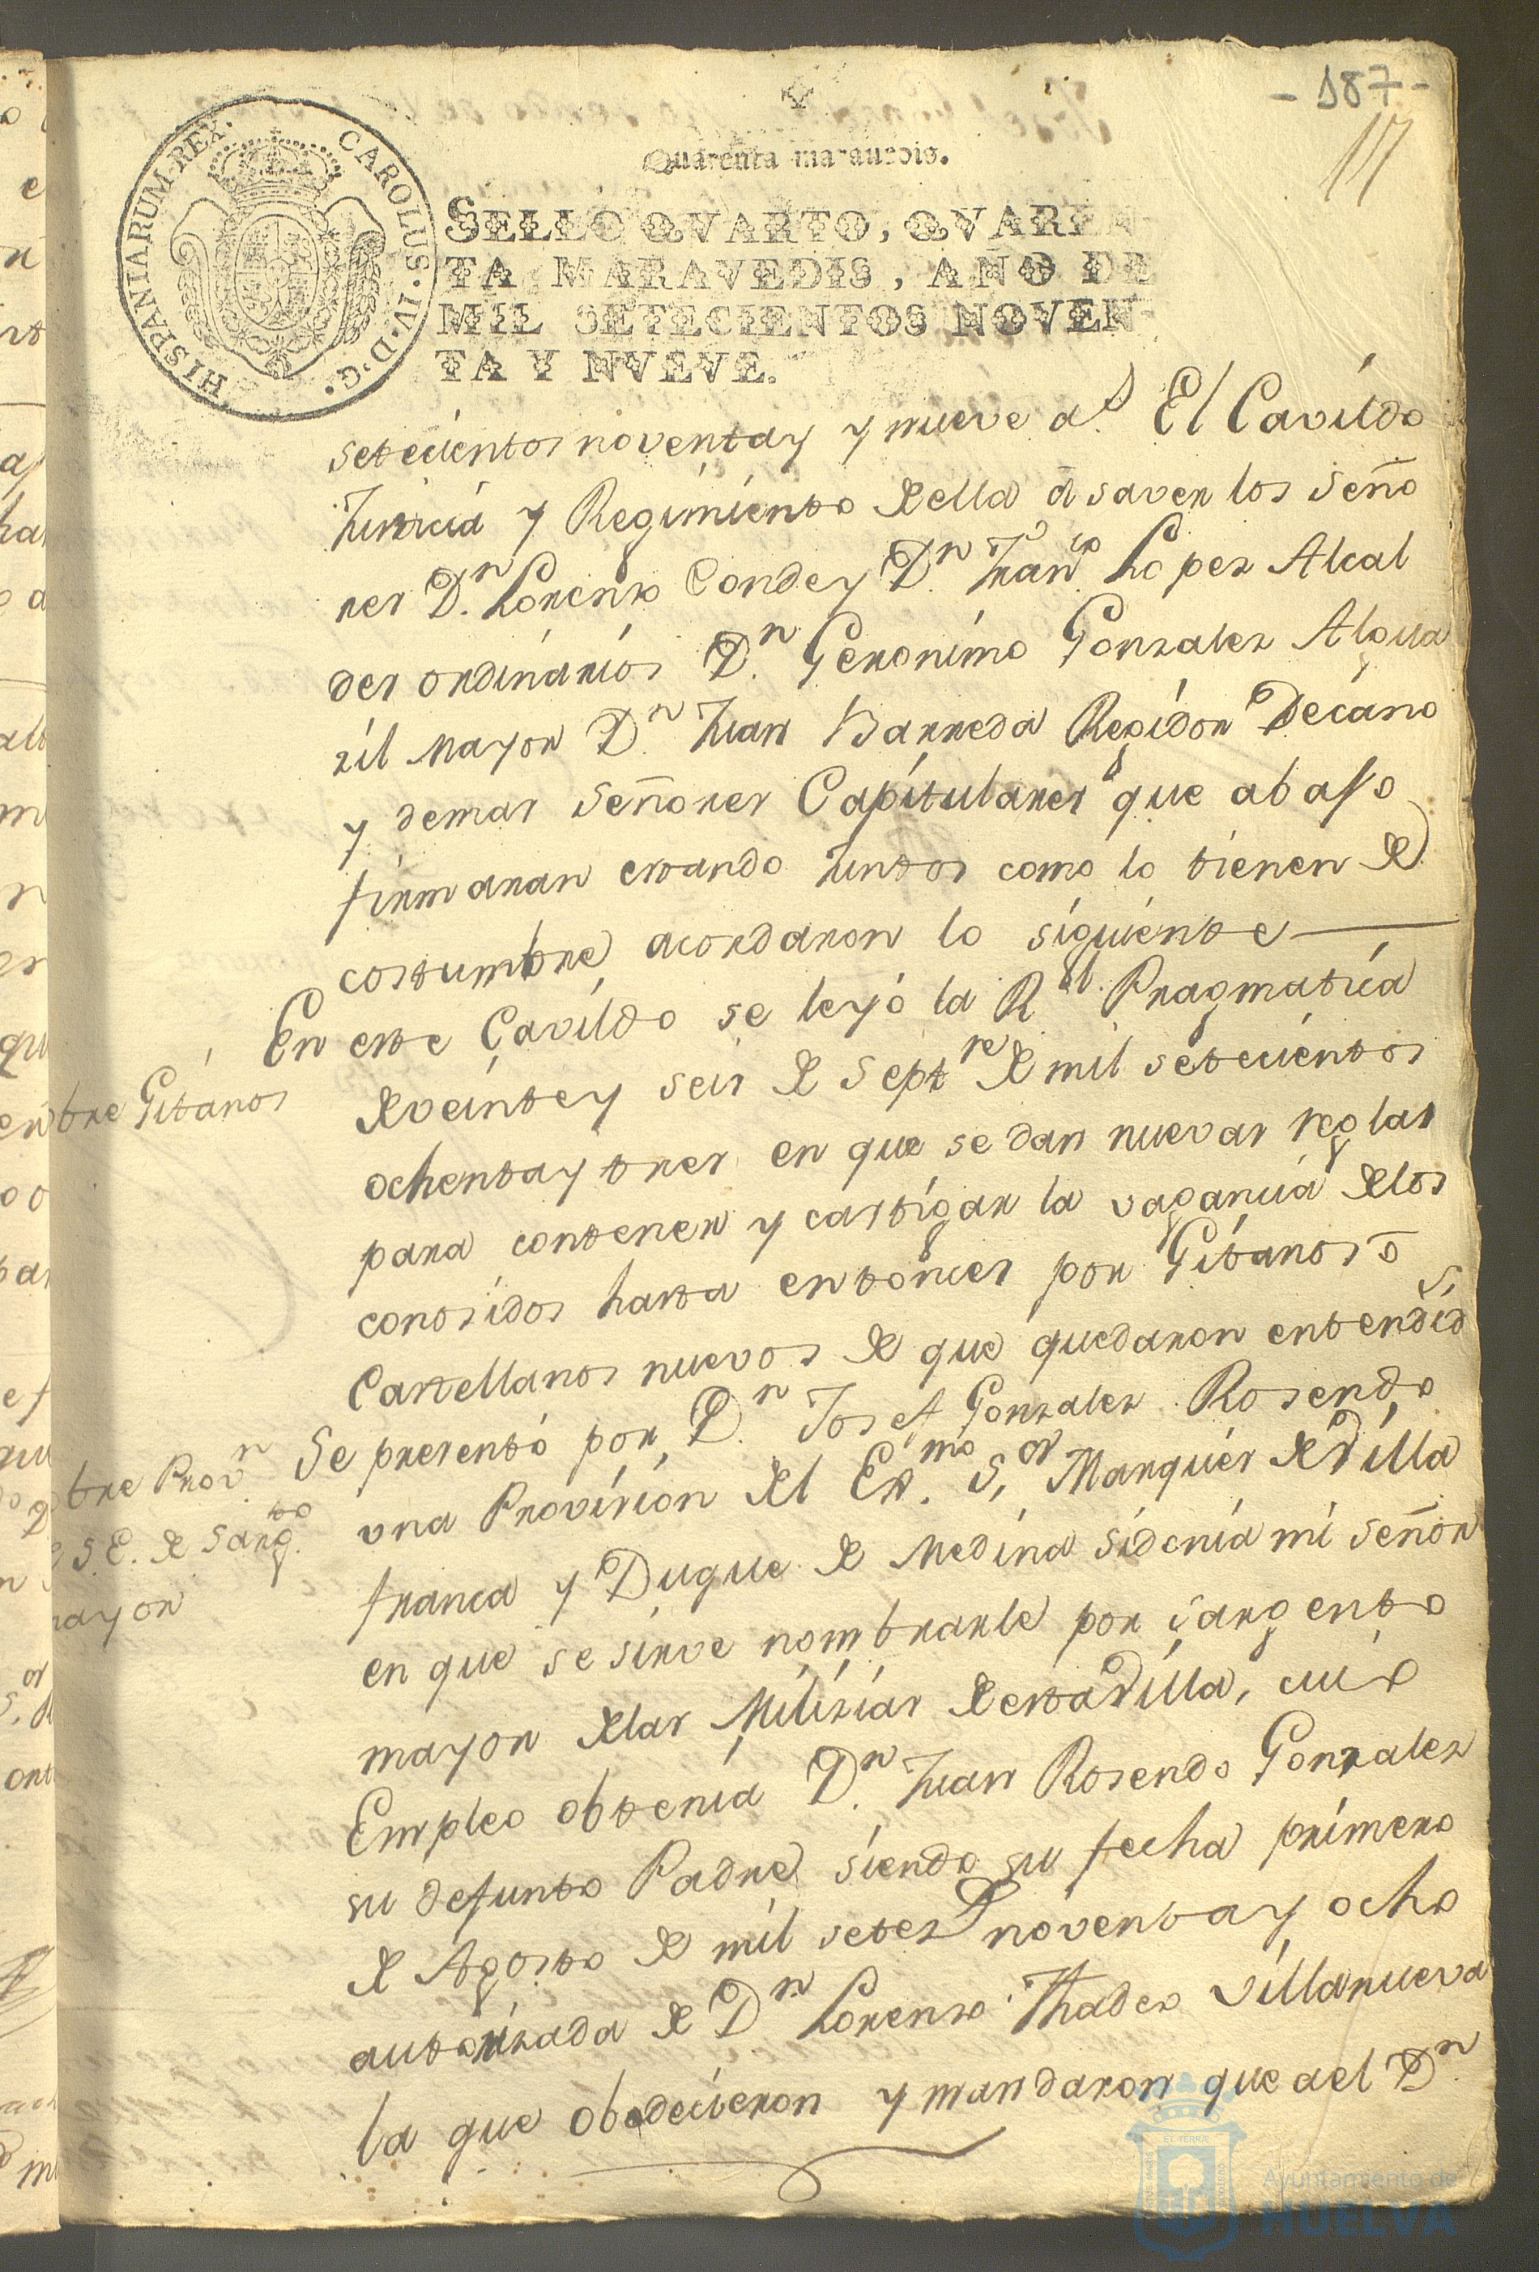 - 187 -
17
Quarenta marauedis.
HISPANIARUM·REX· CAROLUS·IV·D·G·
SELLO QVARTO, QVAREN-
TA MARAVEDIS, AÑO DE
MIL SETECIENTOS NOVEN-
TA Y NVEVE.
setecientos noventay y nueve as. El Cavildo
Justicia y Regimiento de ella á saver los seño
res Dn. Lorenzo Conde y Dn. Juan Lopez Alcal
des ordinarios Dn. Geronimo Gonzalez Algua
zil mayor Dn. Juan Barreda Regidor Decano
y demas señores Capitulares que abaxo
firmaran estando Juntos como lo tienen de
costumbre acordaron lo siguiente
En este Cavildo se leyó la Rl. Pragmatica
de veinte y seis de Septre de mil setecientos
bre Gitanos
ochenta y tres en que se dan nuevas reglas
para contener y castigar la vagancia de los
conosidos hasta entonces por Gitanos ó
Castellanos nuevos de que quedaron entendidos
Se presentó por Dn. Josef Gonzalez Rosendo
bre Provn
S.E. de Sargto.
mayor
una Provision del Exmo. Sor. Marques de Villa
franca y Duque de Medina Sidonia mi señor
en que se sirve nombrarle por sargento
mayor de las Milizias de esta Villa, cuio
Empleo obtenia Dn. Juan Rosendo Gonzalez
su defunto Padre siendo su fecha primero
de Agosto de mil setezs noventa y ocho
autorizada de Dn. Lorenzo Thadeo Villanueva
la que obedecieron y mandaron que a el Dn.
Ayuntamiento de
HUELVA